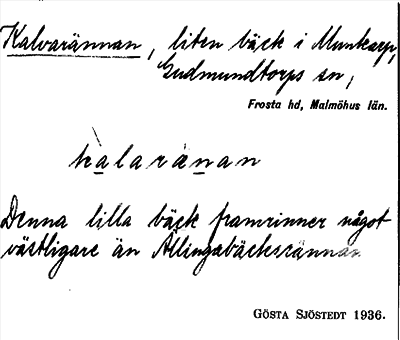 Kalvarännan, liten bäck i Munkarp,
Gudmundtorps sn,
Frosta hd, Malmöhus län.
kalaränan
Denna lilla bäck framrinner något
västligare än Allingabäcksrännan
GÖSTA SJÖSTEDT 1936.